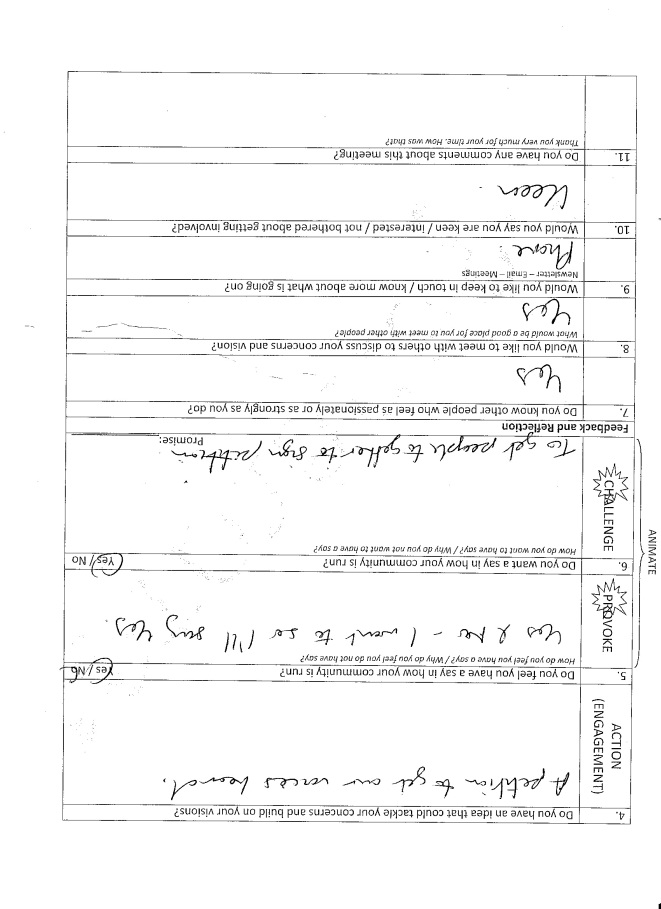 4. Do you have an idea that could tackle your concerns and build on your visions?
ACTION
(ENGAGEMENT)
A petition to get our voices heard.
5. Do you feel you have a say in how your community is run? Yes / No
How do you feel you have a say? / Why do you feel you do not have say?
PROVOKE
Yes & No - I want to so I'll say Yes.
6. Do you want a say in how your community is run? Yes / No
How do you want to have say? / Why do you not want to have a say?
CHALLENGE
ANIMATE
To get people together to sign petition
Promise:
Feedback and Reflection
7. Do you know other people who feel as passionately or as strongly as you do?
Yes
8. Would you like to meet with others to discuss your concerns and vision?
What would be a good place for you to meet with other people?
Yes
9. Would you like to keep in touch / know more about what is going on?
Newsletter – Email – Meetings
Phone
10. Would you say you are keen / interested / not bothered about getting involved?
Keen.
11. Do you have any comments about this meeting?
Thank you very much for your time. How was that?